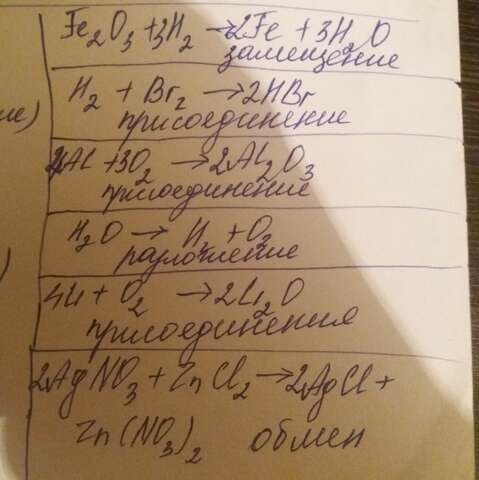 Fe₂O₃ + 3H₂ → 2Fe + 3H₂O
замещение
H₂ + Br₂ → 2HBr
присоединение
4Al + 3O₂ → 2Al₂O₃
присоединение
H₂O → H₂ + O₂
разложение
4Li + O₂ → 2Li₂O
присоединения
2AgNO₃ + ZnCl₂ → 2AgCl +
Zn(NO₃)₂ обмен